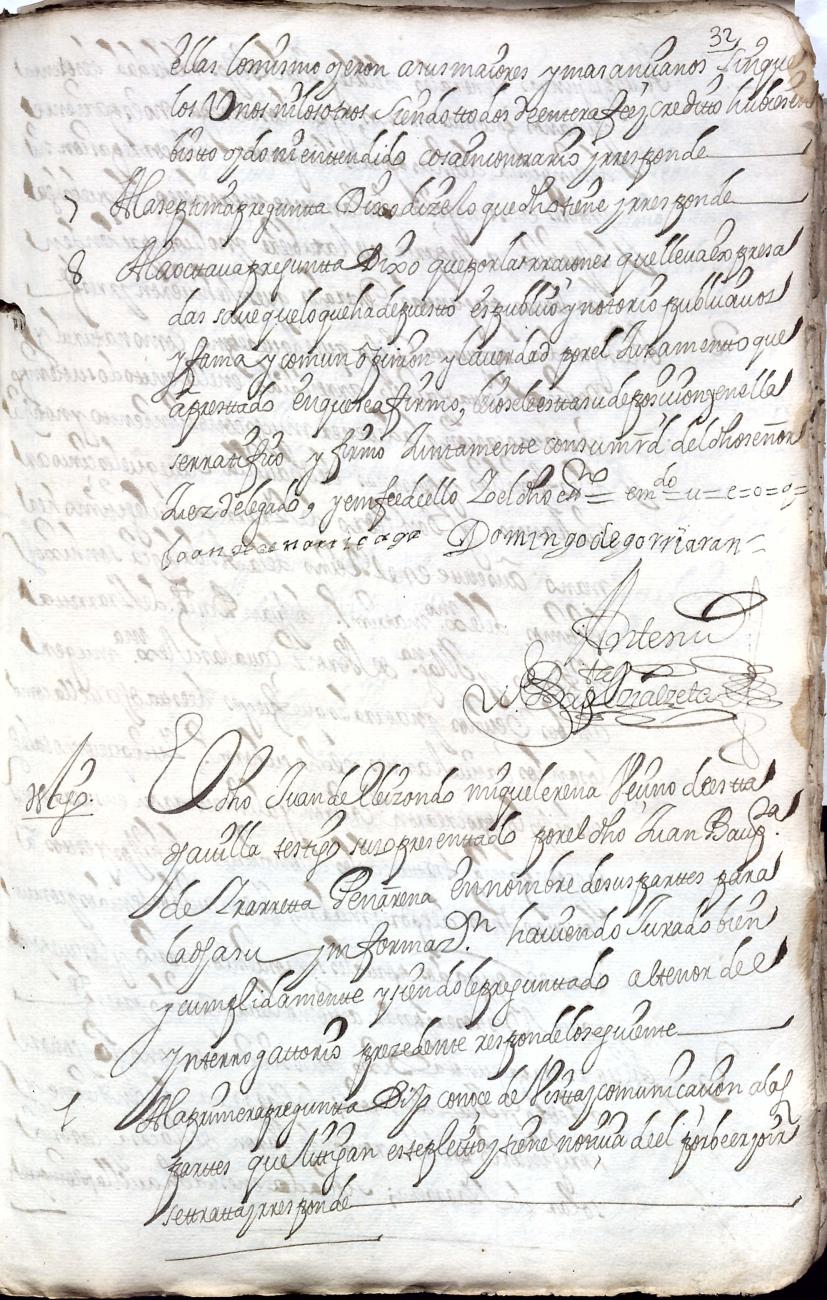 32
ellas lo mismo oyeron a sus maiores y mas anzianos sin que
los Unos ni los otros siendo ttodos de entera fee y creditto hubiesen
bistto oydo ni entendido cosa en contrario y rresponde
7 A la septima pregunta Dixo dize lo que dho tiene y rresponde
8 A la octaua pregunta Dixo que por las rraçones que lleua expresa
das saue que lo que ha depuesto es publico y notorio publica uos
y fama y comun opinion y la uerdad por el Juramento que
a prestado en que se afirmo, leiosele esta su deposicion y en ella
se rratifico y firmo Juntamente con su mrd del dho señor
Juez delegado, y en fee de ello Yo el dho essno = emdo = u = e = o = q =
Domingo de gorriaran
Ante mi
tta
El dho Juan de Eleizondo miquelerena Vezino de esta
dha uilla testigo suso presentado por el dho Juan Baupta
de Yrarreta Penarena en nombre de sus partes para
la dha su ynformaon hauiendo Jurado bien
y cumplidamente y siendole preguntado al tenor de el
Ynterrogattorio prezedente responde lo seguiente
1 A la primera pregunta Dijo conoce de Vista y comunicacion a las
partes que littigan este pleito y tiene noticia de el por
se tratta y rresponde